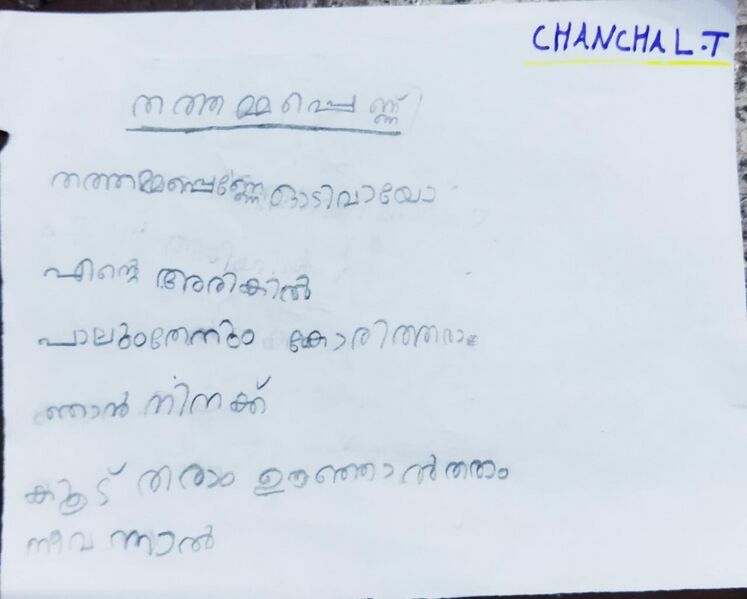 CHANCHAL.T
തത്തമ്മപ്പെണ്ണ്
തത്തമ്മപ്പെണ്ണേ ഓടിവായോ
എന്റെ അരികിൽ
പാലുംതേനും കോരിത്തരാം
ഞാൻ നിനക്ക്
കൂട് തരാം ഊഞ്ഞാൽതരാം
നീവന്നാൽ